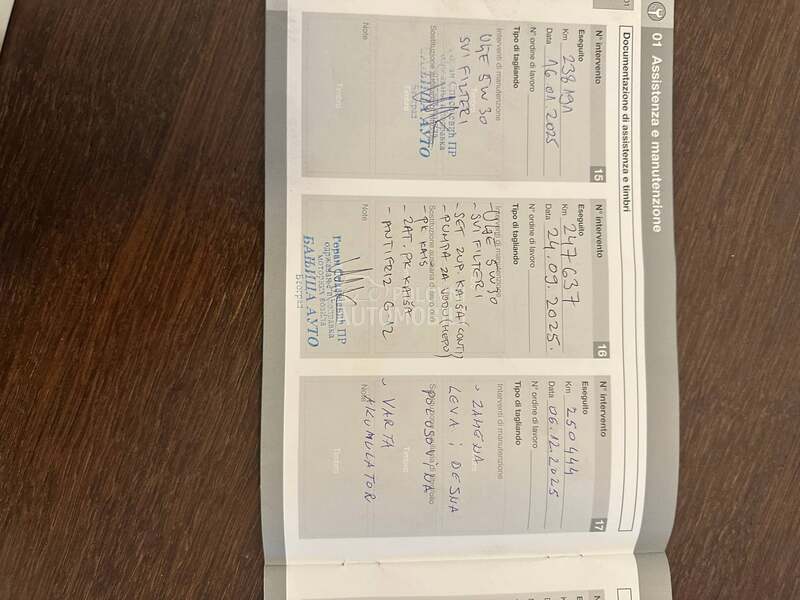 01 Assistenza e manutenzione
Documentazione di assistenza e timbri
N° intervento 15
Eseguito
Km 238191
Data 16.01.2025
N° ordine di lavoro
Tipo di tagliando
Interventi di manutenzione
ULJE 5W30
SVI FILTERI
Note
Timbro
БАЊИЦА АУТО
Београд
N° intervento 16
Eseguito
Km 247637
Data 24.09.2025.
N° ordine di lavoro
Tipo di tagliando
Interventi di manutenzione
- ULJE 5W30
- SVI FILTERI
- SET ZUP. KAIŠA (CONTI)
- PUMPA ZA VODU (HEPU)
- PK KAIS
- ZAT. PK KAIŠA
- ANTIFRIZ G12
Note
БАЊИЦА АУТО
Београд
N° intervento 17
Eseguito
Km 250444
Data 06.12.2025
N° ordine di lavoro
Tipo di tagliando
Interventi di manutenzione
ZAMENA
LEVA i DESNA
POLUOSOVINA
Timbro
VARTA
AKUMULATOR
Note
Timbro